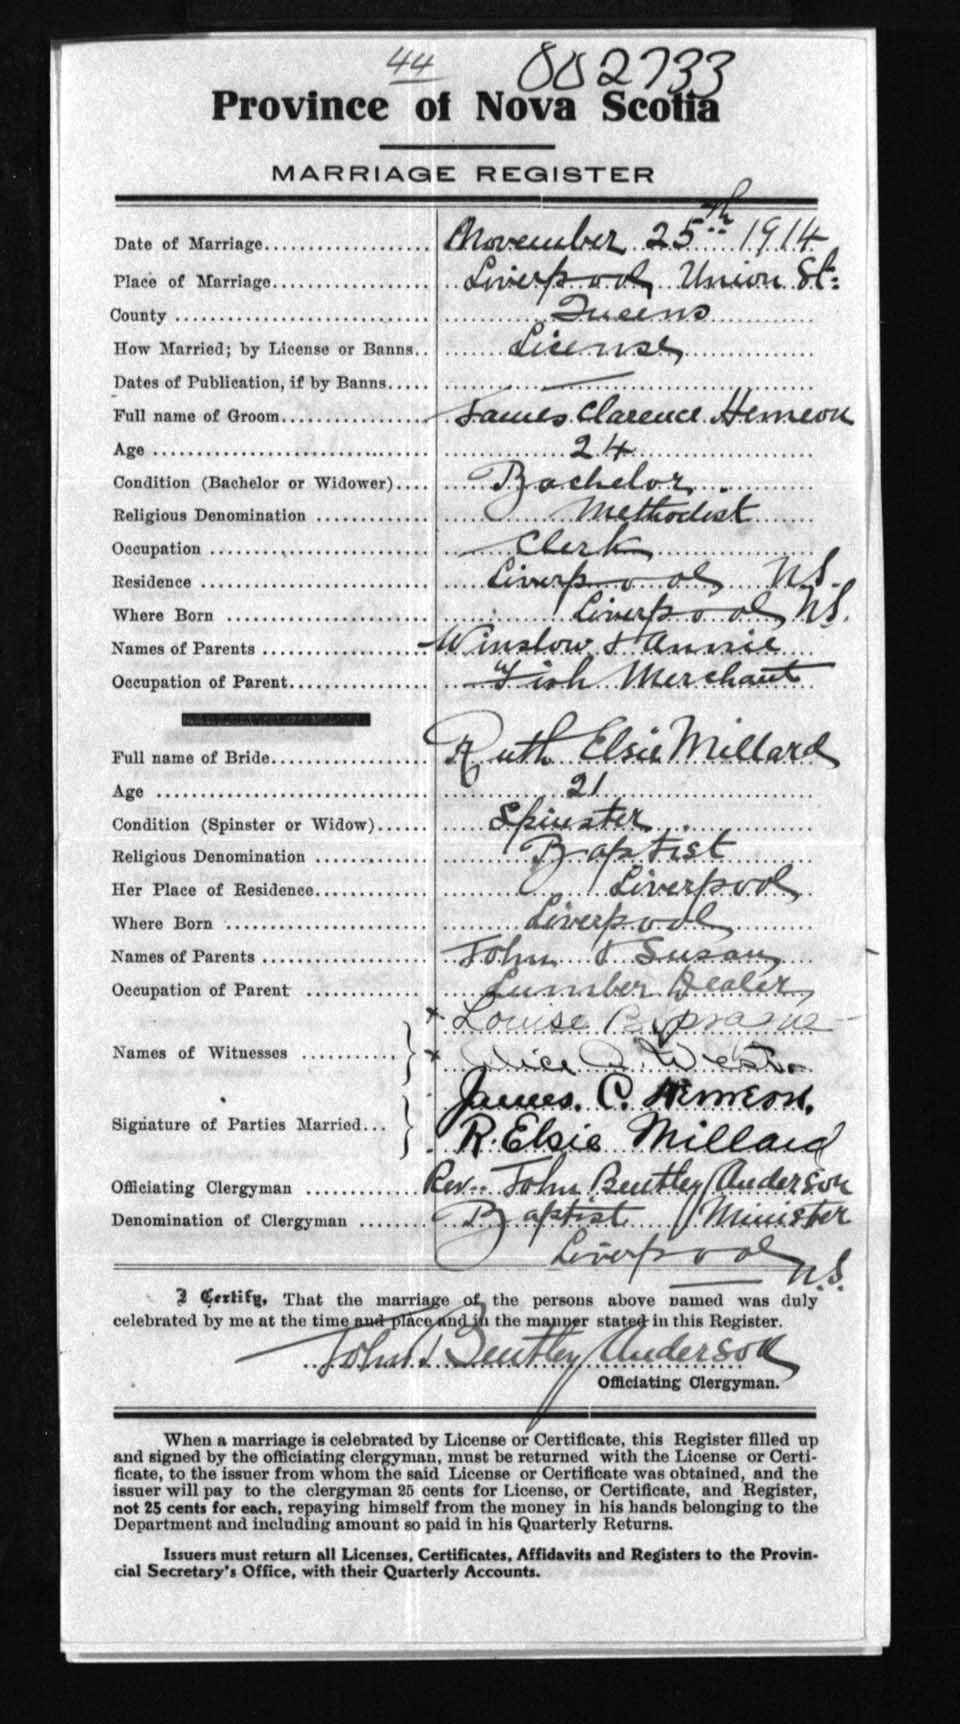 44 002733
Province of Nova Scotia
MARRIAGE REGISTER
Date of Marriage................... November 25th 1914
Place of Marriage................... Liverpool Union St:
County ............................. Queens
How Married; by License or Banns.. License
Dates of Publication, if by Banns..... —
Full name of Groom................. James Clarence Hemeon
Age ................................ 24
Condition (Bachelor or Widower).... Bachelor
Religious Denomination ............. Methodist
Occupation ......................... Clerk
Residence .......................... Liverpool N.S.
Where Born ........................ Liverpool N.S.
Names of Parents .................. Winslow & Annie
Occupation of Parent................ Fish Merchant
Full name of Bride.................. Ruth Elsie Millard
Age ................................ 21
Condition (Spinster or Widow)...... Spinster
Religious Denomination ............. Baptist
Her Place of Residence.............. Liverpool
Where Born ........................ Liverpool
Names of Parents .................. John & Susan
Occupation of Parent .............. Lumber Dealer
x Louise
Names of Witnesses ........... } x Alice A. West.
James. C. Hemeon.
Signature of Parties Married... } R. Elsie Millard
Officiating Clergyman ............. Rev.. John Bentley Anderson
Denomination of Clergyman ........ Baptist Minister
Liverpool N.S.
I Certify, That the marriage of the persons above named was duly
celebrated by me at the time and place and in the manner stated in this Register.
John Bentley Anderson
Officiating Clergyman.
When a marriage is celebrated by License or Certificate, this Register filled up
and signed by the officiating clergyman, must be returned with the License or Certi-
ficate, to the issuer from whom the said License or Certificate was obtained, and the
issuer will pay to the clergyman 25 cents for License, or Certificate, and Register,
not 25 cents for each, repaying himself from the money in his hands belonging to the
Department and including amount so paid in his Quarterly Returns.
Issuers must return all Licenses, Certificates, Affidavits and Registers to the Provin-
cial Secretary's Office, with their Quarterly Accounts.